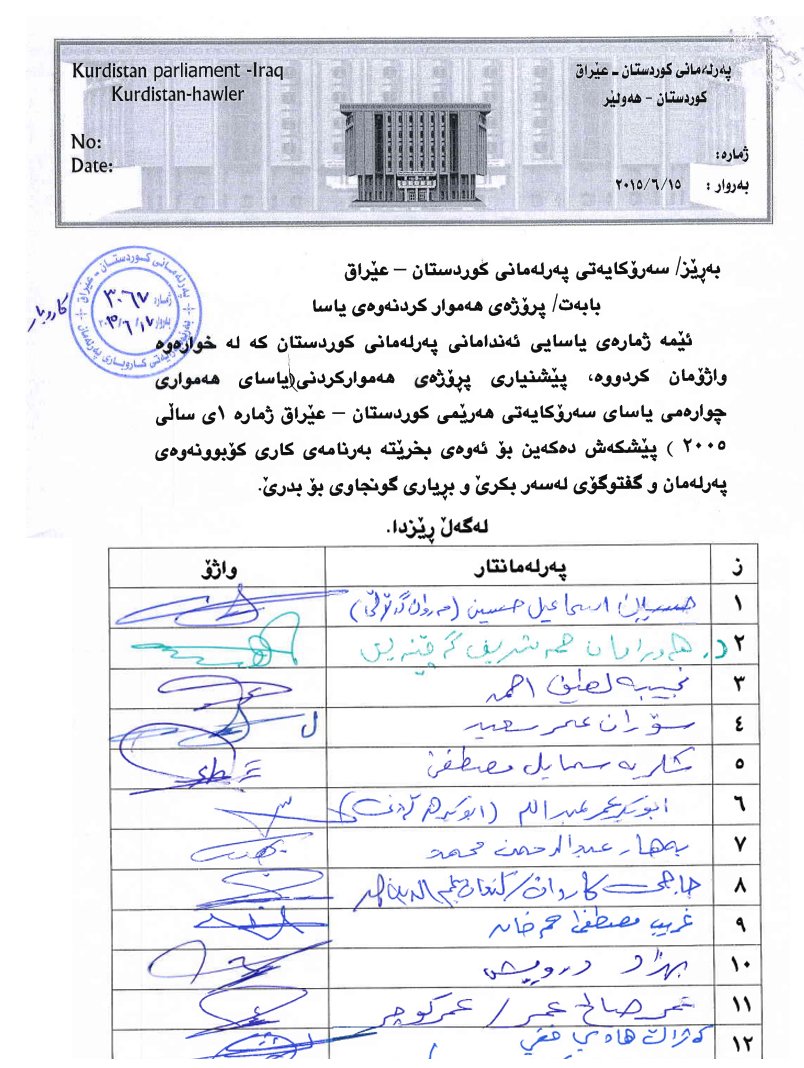 Kurdistan parliament -Iraq
Kurdistan-hawler
No:
Date:
پەرلەمانی کوردستان - عێراق
کوردستان - هەولێر
ژمارە:
بەروار : ٢٠١٥/٦/١٥
کاروبار
بەڕێز/ سەرۆکایەتی پەرلەمانی کوردستان – عێراق
بابەت/ پرۆژەی هەموار کردنەوەی یاسا
ئێمە ژمارەی یاسایی ئەندامانی پەرلەمانی کوردستان کە لە خوارەوە
واژۆمان کردووە، پێشنیاری پڕۆژەی هەموارکردنی(یاسای هەمواری
چوارەمی یاسای سەرۆکایەتی هەرێمی کوردستان – عێراق ژمارە ١ی ساڵی
٢٠٠٥ ) پێشکەش دەکەین بۆ ئەوەی بخرێتە بەرنامەی کاری کۆبوونەوەی
پەرلەمان و گفتوگۆی لەسەر بکرێ و بڕیاری گونجاوی بۆ بدرێ.
لەگەڵ ڕێزدا.
ز پەرلەمانتار واژۆ
١ اسماعیل حسین
٢ د. هاورامان حمە شریف
٣ نجیبە لطیف احمد
٤ سۆران عمر سعید
٥ شکریە سمایل مصطفی
٦ ابوبکر عمر عبداللە
٧ بەهار عبدالرحمن محمد
٨ حاجی کاروان/
٩ غریب مصطفی
١٠ بهزاد درویش
١١ عمر صالح عمر / عمر کوچر
١٢ کەژاڵ هادی فقی